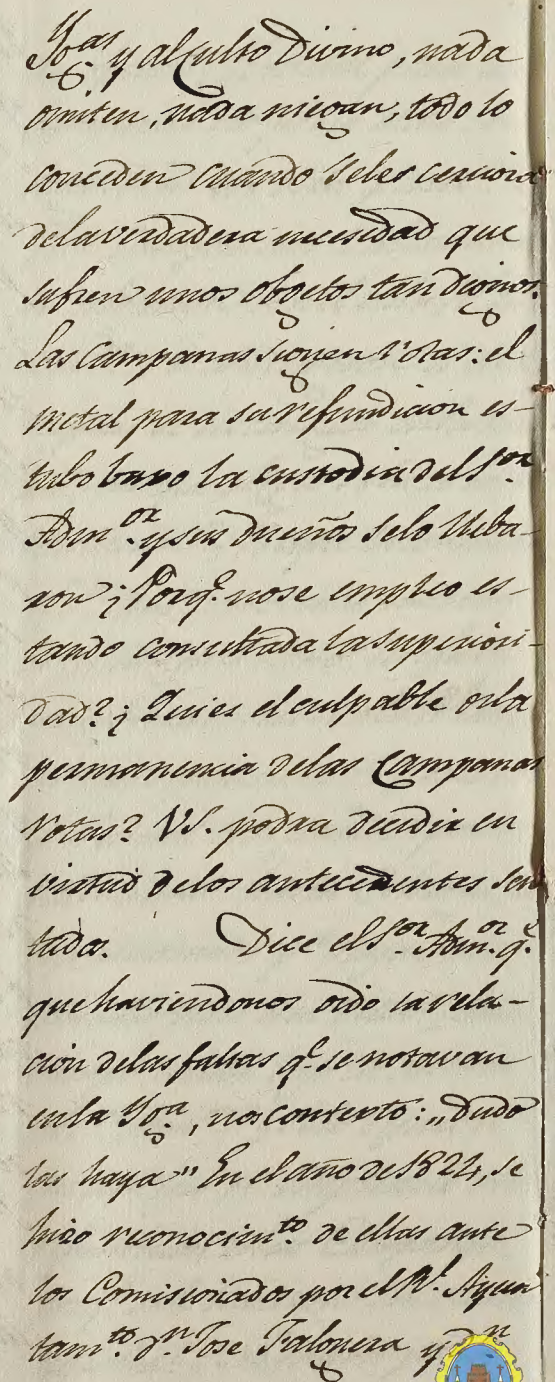 Yg.as y al Culto Divino, nada
omiten, nada niegan, todo lo
conceden cuando seles cerciora
dela verdadera necesidad que
sufren unos obgetos tan dignos.
Las Campanas siguen rotas: el
metal para su refundicion es-
tubo baxo la custodia del S.or
Adm.or y sus dueños selo lleba-
ron ¿Porq.e nose empleo es-
tando consultada la superiori-
dad? ¿Quien es el culpable
permanencia delas Campanas
rotas? VS. podra decidir en
virtud delos antecedentes sen
tados. Dice el S.or Adm.or q.e
que haviendonos oido la rela-
cion delas faltas q.e se notavan
en la Yg.a, nos contexto: „dudo
las haya" En el año de 1824, se
hizo reconocim.to de ellas ante
los Comisionados por el R.l Ayun
tam.to d.n Jose Talonera y d.n